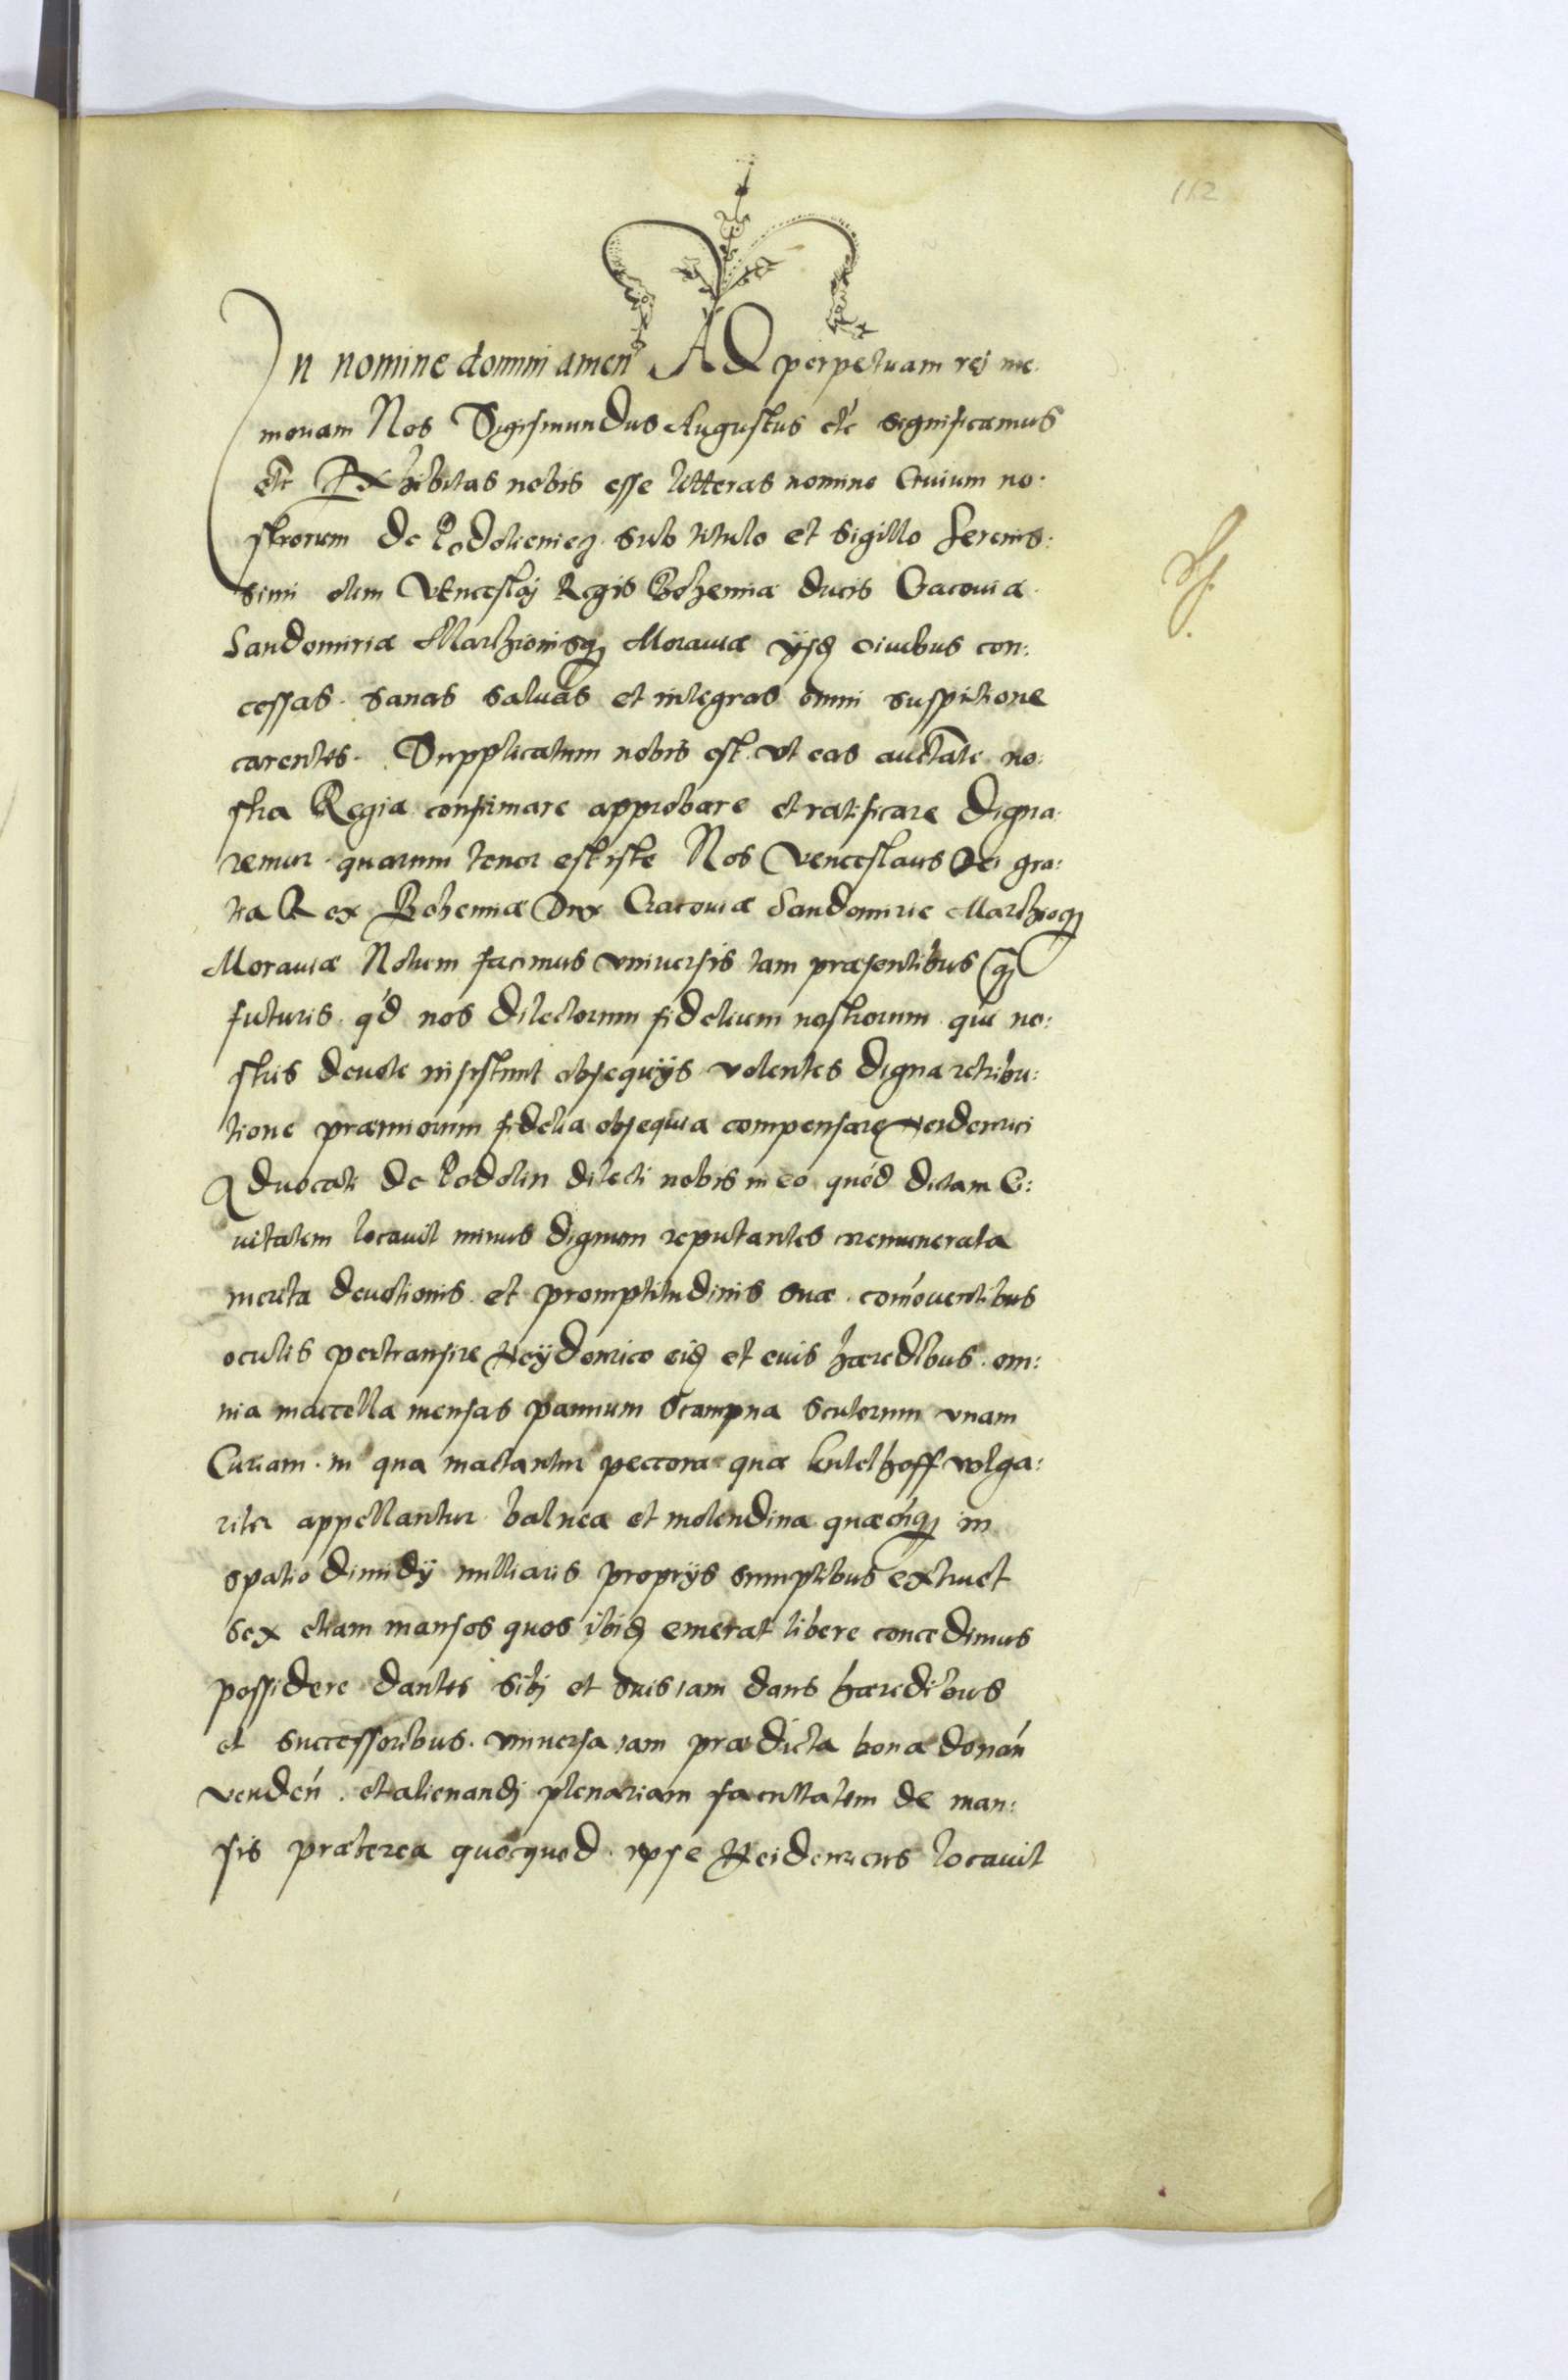 162
In nomine domini amen AD perpetuam rei me:
moriam Nos Sigismundus Augustus etc significamus
etc Exhibitas nobis esse litteras nomine Ciuium no:
strorum de Podolieniecz sub titulo et sigillo Serenis:
simi olim Venceslaj Regis Bohemiæ ducis Cracouiæ
Sandomiriæ Marchionisq Morauiæ ijsd ciuibus con:
cessas. sanas saluas et integras omni suspitione
carentes. Supplicatum nobis est. vt eas auctate no:
stra Regia confirmare approbare et ratificare digna:
remur. quarum tenor est iste Nos Venceslaus Dei gra:
tia Rex Bohemiæ Dux Cracouiæ Sandomirie Marchioq
Morauiæ Notum facimus vniuersis tam præsentibus q
futuris. qd nos dilectorum fidelium nostrorum qui no:
stris deuote insistunt obsequijs volentes digna retribu:
tione præmiorum fidelia obsequia compensare Heidenrici
Aduocati de Podolin dilecti nobis in eo quod dictam Ci:
uitatem locauit minus dignum reputantes irremunerata
merita deuotionis et promptitudinis suæ. comouentibus
oculis pertransire Heydenrico eid et euis hæredibus. om:
nia maccella mensas pannum scampna sculorum vnam
Curiam. in qua mactantur peccora quæ kutelhoff volga:
riter appellantur. balnea et molendina quæcuq in
spatio dimidij milliaris proprijs sumptibus extruet
sex etiam mansos quos ibid emerat libere concedimus
possidere dantes sibj et suis iam dans hæredibus
et successoribus. vniuersa iam prædicta bona donan
venden. et alienandj plenariam facultatem de man:
sis præterea quocquod. ipse Heidenricus locauit